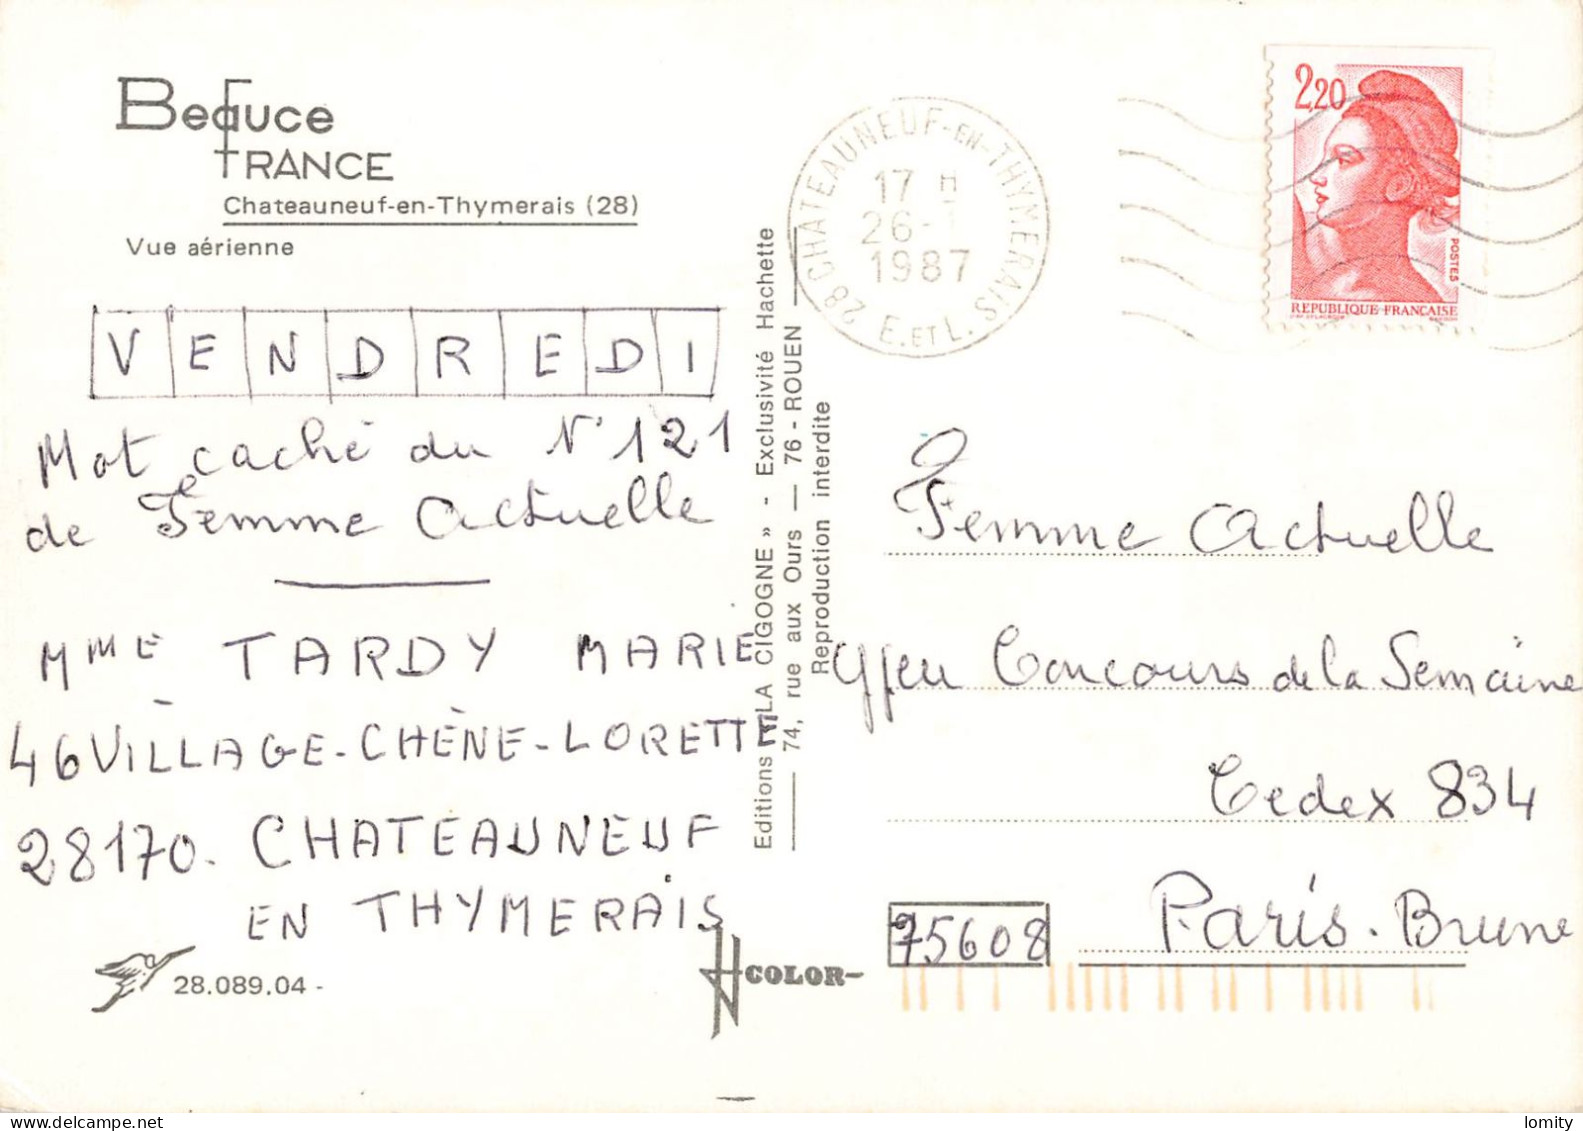 Beauce
FRANCE
Chateauneuf-en-Thymerais (28)
Vue aérienne
VENDREDI
Mot caché du N° 121
de Femme Actuelle
MME TARDY MARIE
46 VILLAGE-CHÊNE-LORETTE
28170. CHATEAUNEUF
EN THYMERAIS
28.089.04 -
COLOR
Editions « LA CIGOGNE » - Exclusivité Hachette
74, rue aux Ours — 76 - ROUEN
Reproduction interdite
28 CHATEAUNEUF-EN-THYMERAIS
17 H
26-1
1987
E. ET L.
2,20
POSTES
REPUBLIQUE FRANCAISE
Femme Actuelle
Jeu Concours de la Semaine
Cedex 834
Paris-Brune
75608
lomity